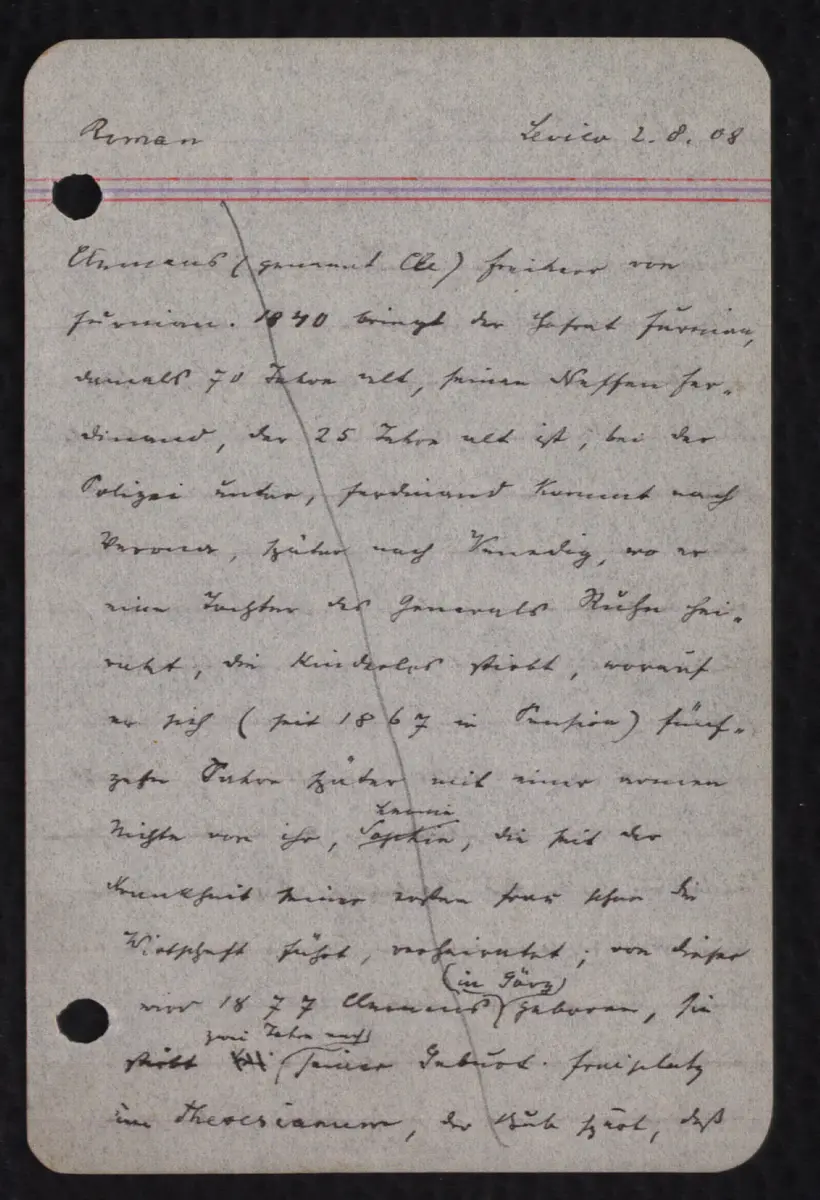 Roman Levico 2. 8. 08
Clemens (genannt Cle) Freiherr von
Furnian. 1840 bringt der Hofrat Furnian,
damals 70 Jahre alt, seinen Neffen Fer-
dinand, der 25 Jahre alt ist, bei der
Polizei unter, Ferdinand kommt nach
Verona, später nach Venedig, wo er
eine Tochter des Generals Kuhn hei-
ratet, die kinderlos stirbt, worauf
er sich (seit 1867 in Pension) fünf-
zehn Jahre später mit einer armen
Leonie
Nichte von ihr, Sophie, die seit der
Krankheit seiner ersten Frau schon die
Wirtschaft führt, verheiratet; von dieser
(in Görz)
wird 1877 Clemens geboren, sie
zwei Jahre nach
stirbt seiner Geburt. Freiplatz
im Theresianum, der Bub spürt, daß